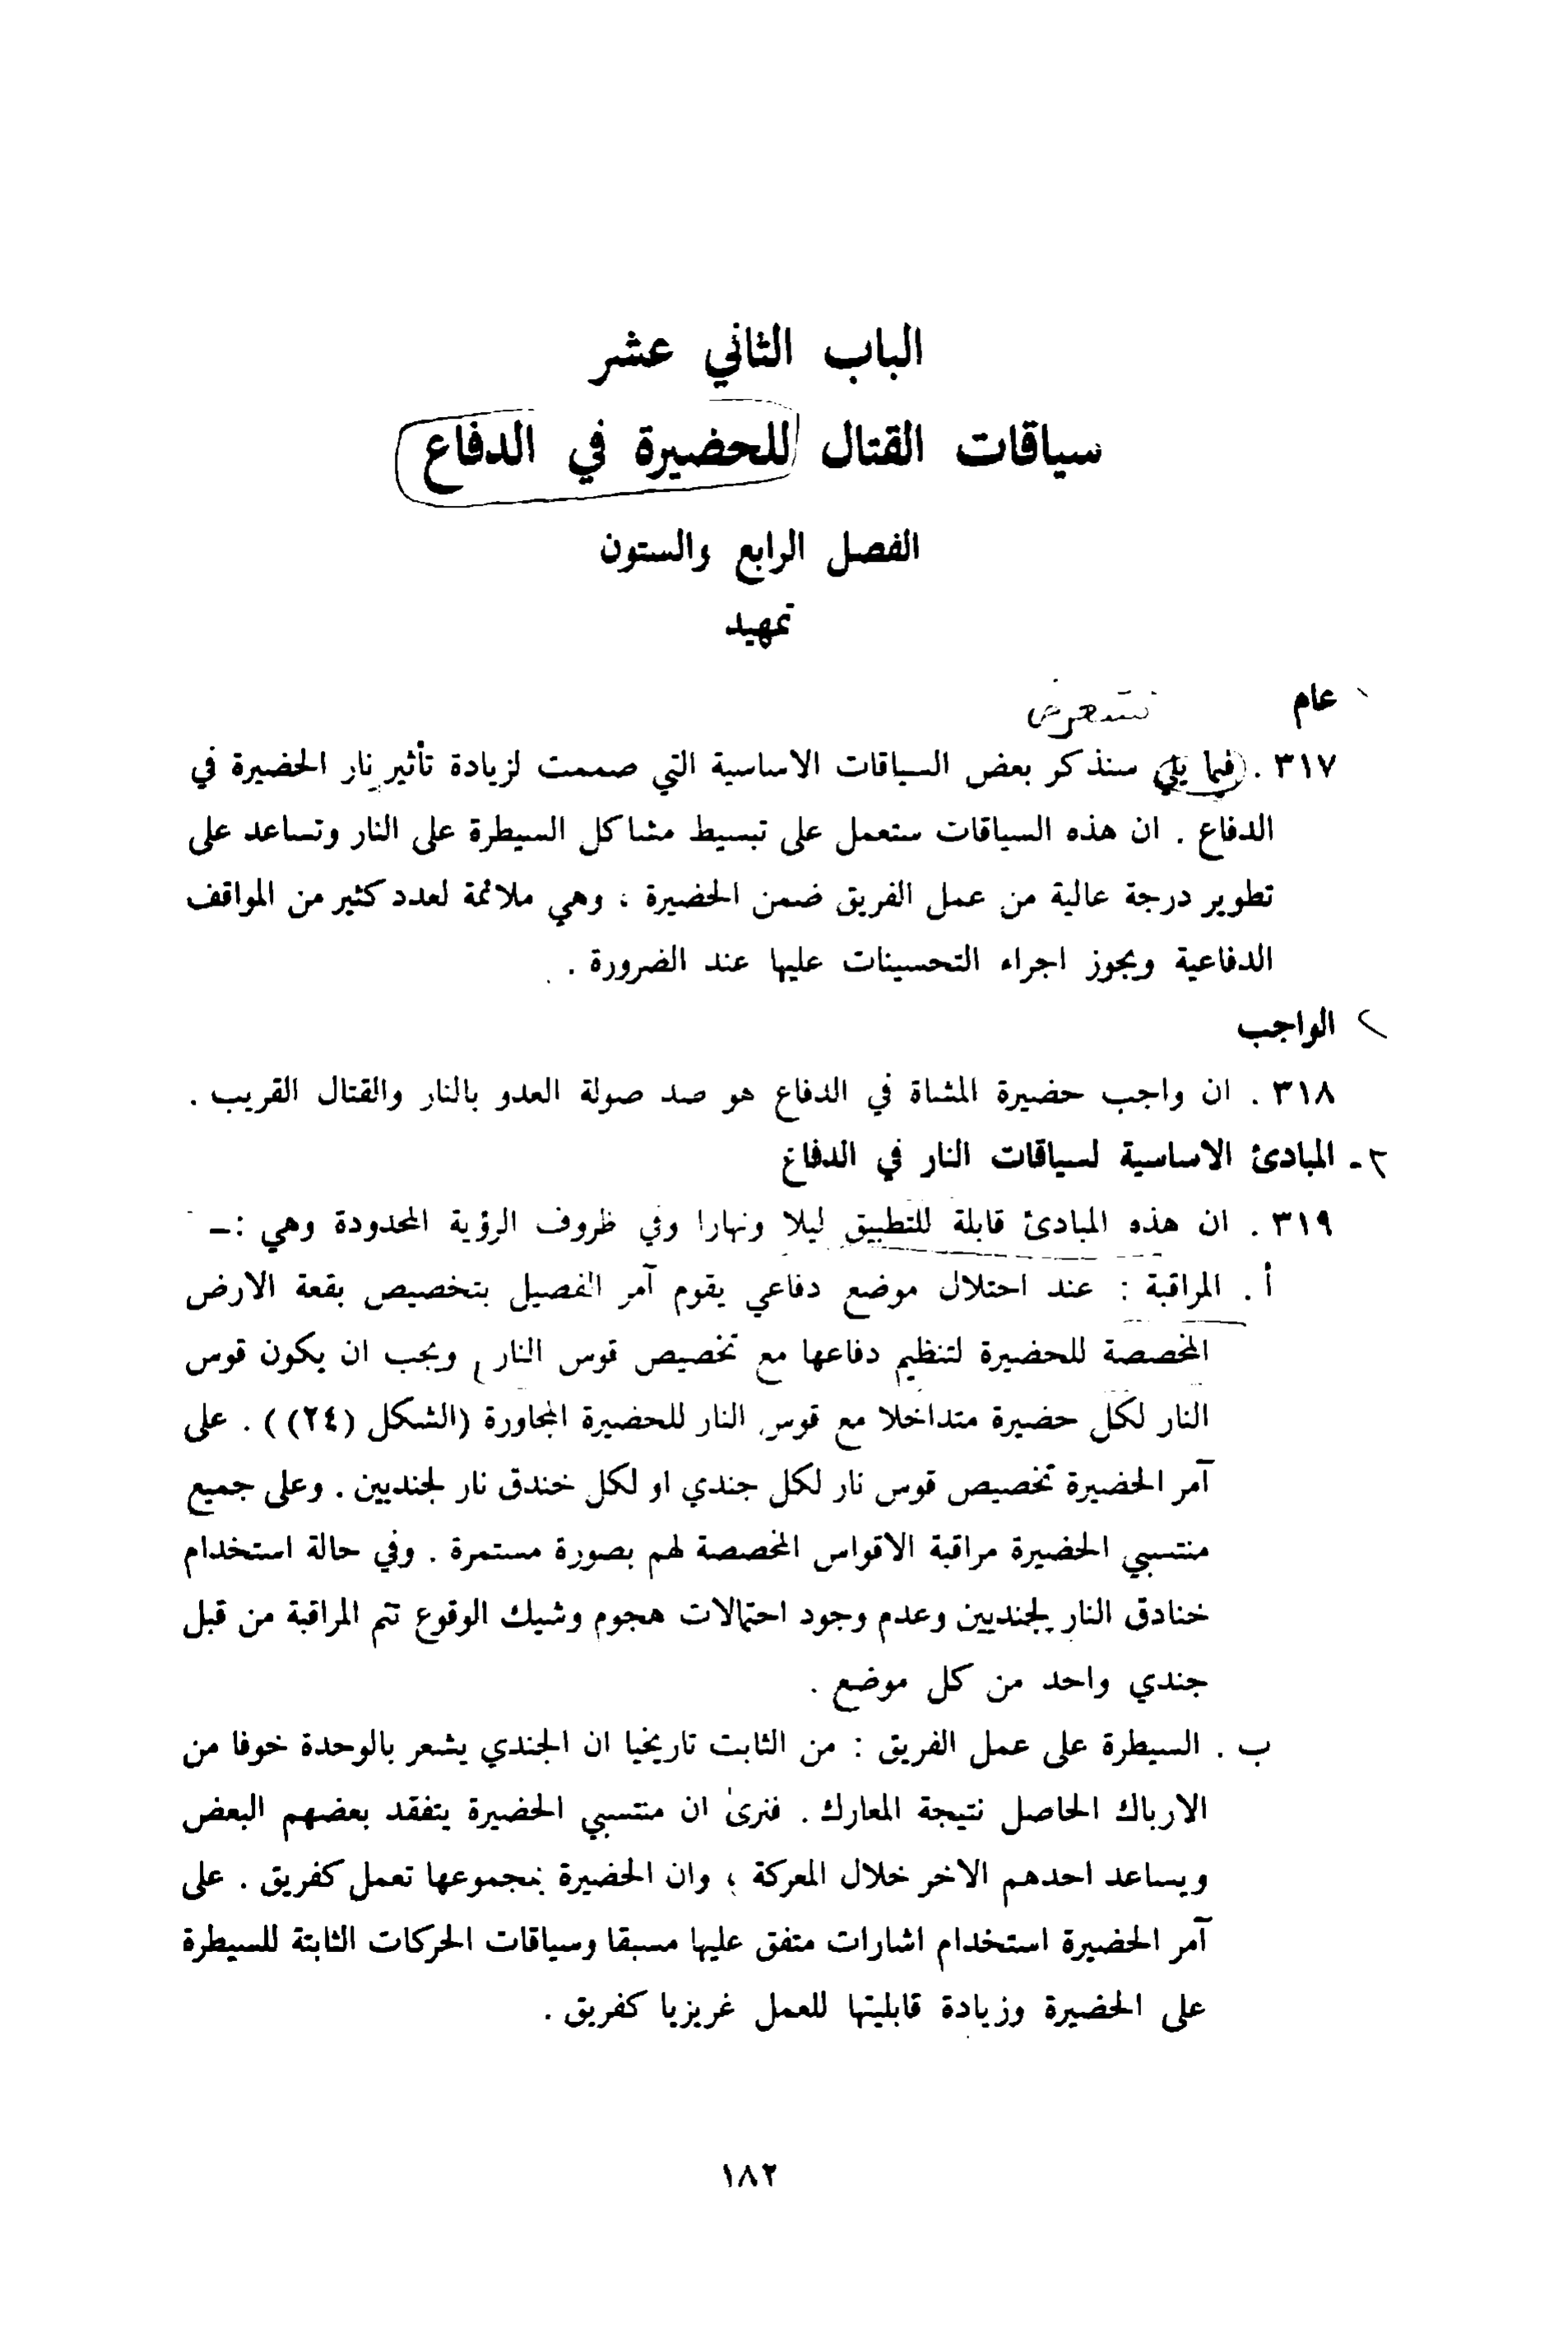 الباب الثاني عشر
سياقات القتال للحضيرة في الدفاع
الفصل الرابع والستون
تمهيد
١ عام
٣١٧ . فيما يلي سنذكر بعض السياقات الاساسية التي صممت لزيادة تأثير نار الحضيرة في
الدفاع . ان هذه السياقات ستعمل على تبسيط مشاكل السيطرة على النار وتساعد على
تطوير درجة عالية من عمل الفريق ضمن الحضيرة ، وهي ملائمة لعدد كثير من المواقف
الدفاعية ويجوز اجراء التحسينات عليها عند الضرورة .
٢ الواجب
٣١٨ . ان واجب حضيرة المشاة في الدفاع هو صد صولة العدو بالنار والقتال القريب .
٣- المبادئ الاساسية لسياقات النار في الدفاع
٣١٩ . ان هذه المبادئ قابلة للتطبيق ليلا ونهارا وفي ظروف الرؤية المحدودة وهي :-
أ . المراقبة : عند احتلال موضع دفاعي يقوم آمر الفصيل بتخصيص بقعة الارض
المخصصة للحضيرة لتنظيم دفاعها مع تخصيص قوس النار ، ويجب ان يكون قوس
النار لكل حضيرة متداخلا مع قوس النار للحضيرة المجاورة (الشكل (٢٤) ) . على
آمر الحضيرة تخصيص قوس نار لكل جندي او لكل خندق نار لجنديين . وعلى جميع
منتسبي الحضيرة مراقبة الاقواس المخصصة لهم بصورة مستمرة . وفي حالة استخدام
خنادق النار لجنديين وعدم وجود احتمالات هجوم وشيك الوقوع تتم المراقبة من قبل
جندي واحد من كل موضع .
ب . السيطرة على عمل الفريق : من الثابت تاريخيا ان الجندي يشعر بالوحدة خوفا من
الارباك الحاصل نتيجة المعارك . فنرى ان منتسبي الحضيرة يتفقد بعضهم البعض
ويساعد احدهم الاخر خلال المعركة ، وان الحضيرة بمجموعها تعمل كفريق . على
آمر الحضيرة استخدام اشارات متفق عليها مسبقا وسياقات الحركات الثابتة للسيطرة
على الحضيرة وزيادة قابليتها للعمل غريزيا كفريق .
١٨٢